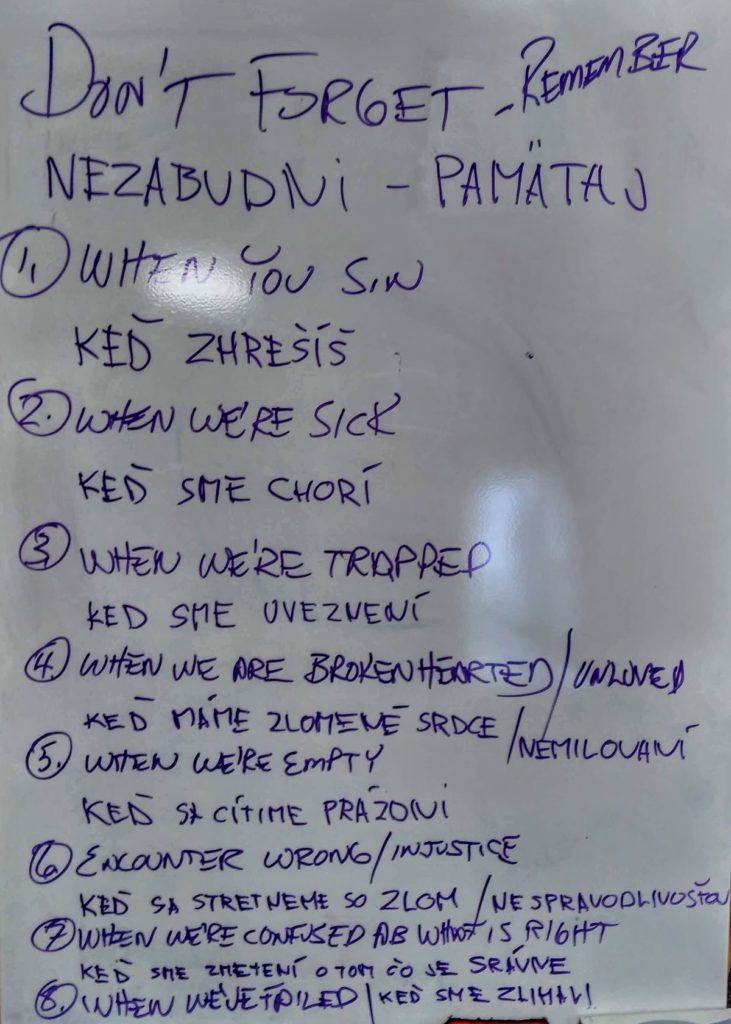 DON'T FORGET - REMEMBER
NEZABUDNI - PAMÄTAJ
1. WHEN YOU SIN
KEĎ ZHREŠÍŠ
2. WHEN WE'RE SICK
KEĎ SME CHORÍ
3 WHEN WE'RE TRAPPED
KED SME UVEZNENÍ
4. WHEN WE ARE BROKENHEARTED/UNLOVED
KEĎ MÁME ZLOMENÉ SRDCE /NEMILOVANÍ
5. WHEN WE'RE EMPTY
KEĎ SA CÍTIME PRÁZDNI
6 ENCOUNTER WRONG/INJUSTICE
KEĎ SA STRETNEME SO ZLOM /NESPRAVODLIVOSŤOU
7 WHEN WE'RE CONFUSED AB WHAT IS RIGHT
KEĎ SME ZMETENÍ O TOM ČO JE SRÁVNE
8. WHEN WE'VE FAILED | KEĎ SME ZLIHALI